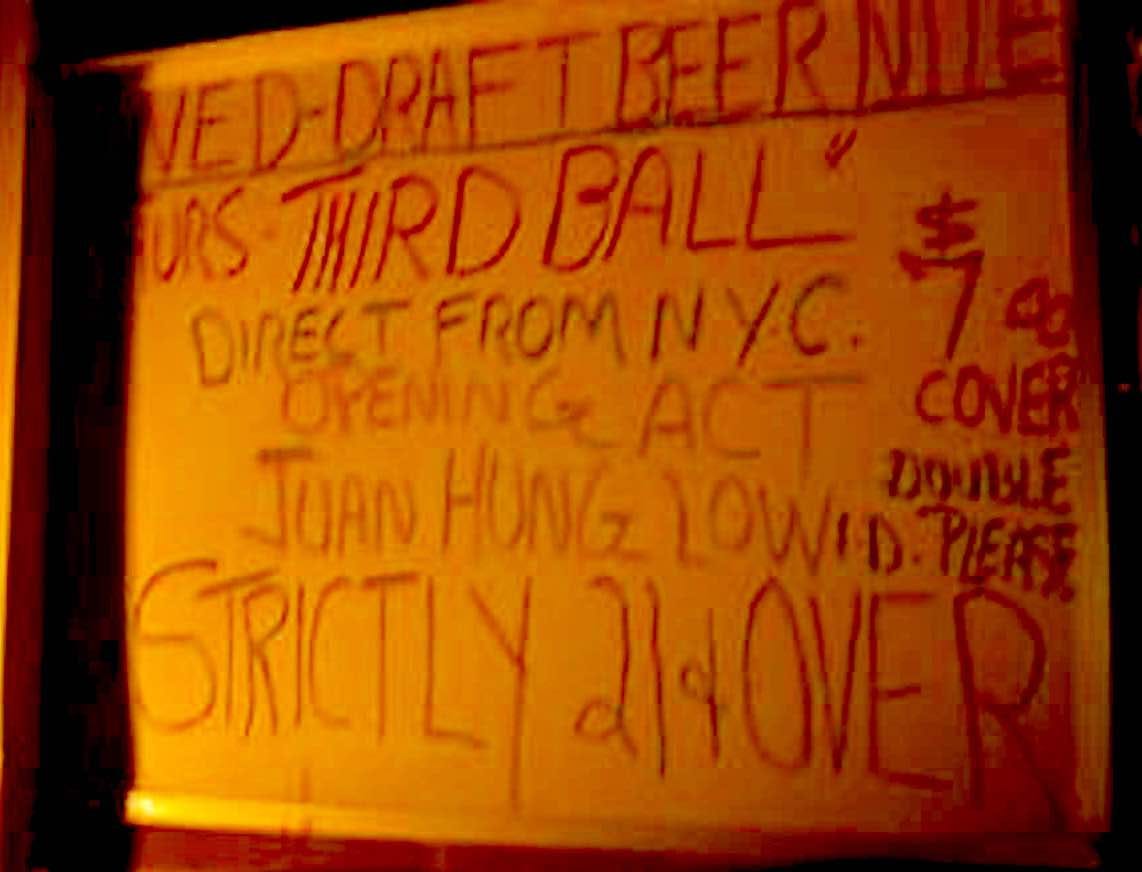 WED-DRAFT BEER NITE
URS THIRD BALL"
DIRECT FROM N.Y.C.
OPENING ACT
JUAN HUNG LOW
STRICTLY 21 & OVER
$
7.00
COVER
DOUBLE
I.D. PLEASE